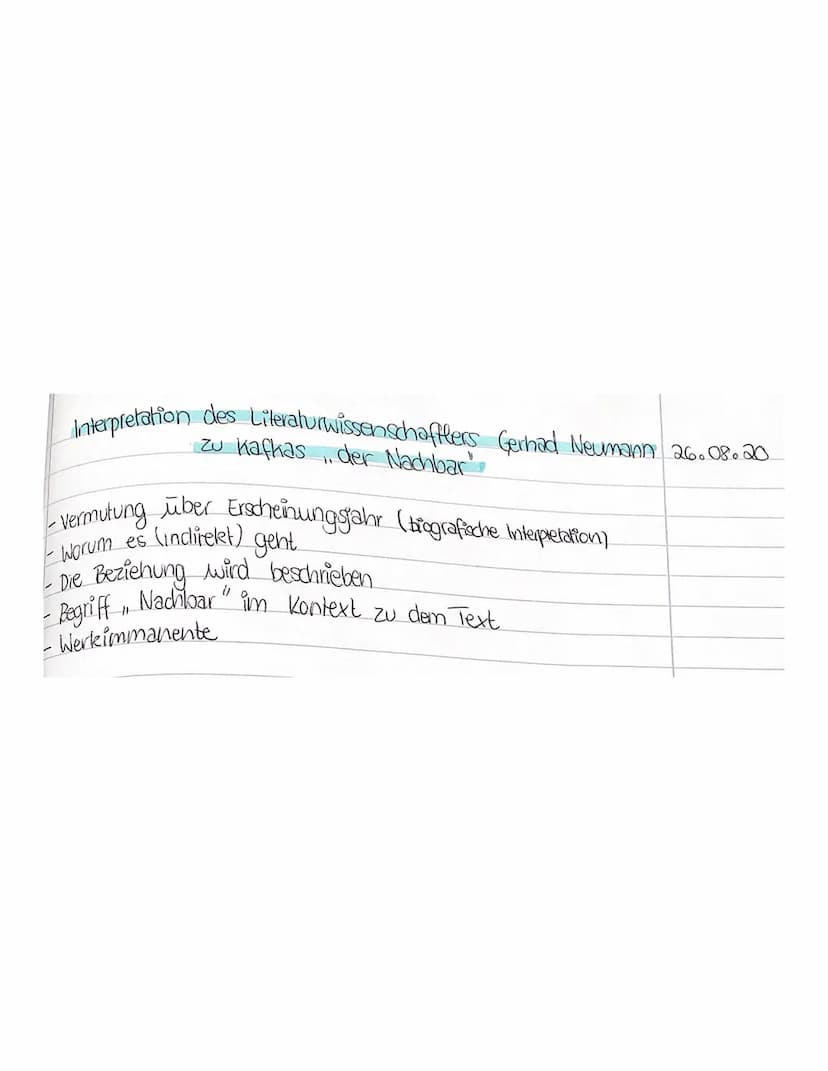 Interpretation des Literaturwissenschaftlers Gerhad Neumann 26.08.20
zu Kafkas „der Nachbar"
- Vermutung über Erscheinungsjahr (biografische Interpretation)
- Worum es (indirekt) geht
- Die Beziehung wird beschrieben
- Begriff „Nachbar" im Kontext zu dem Text
- Werkimmanente